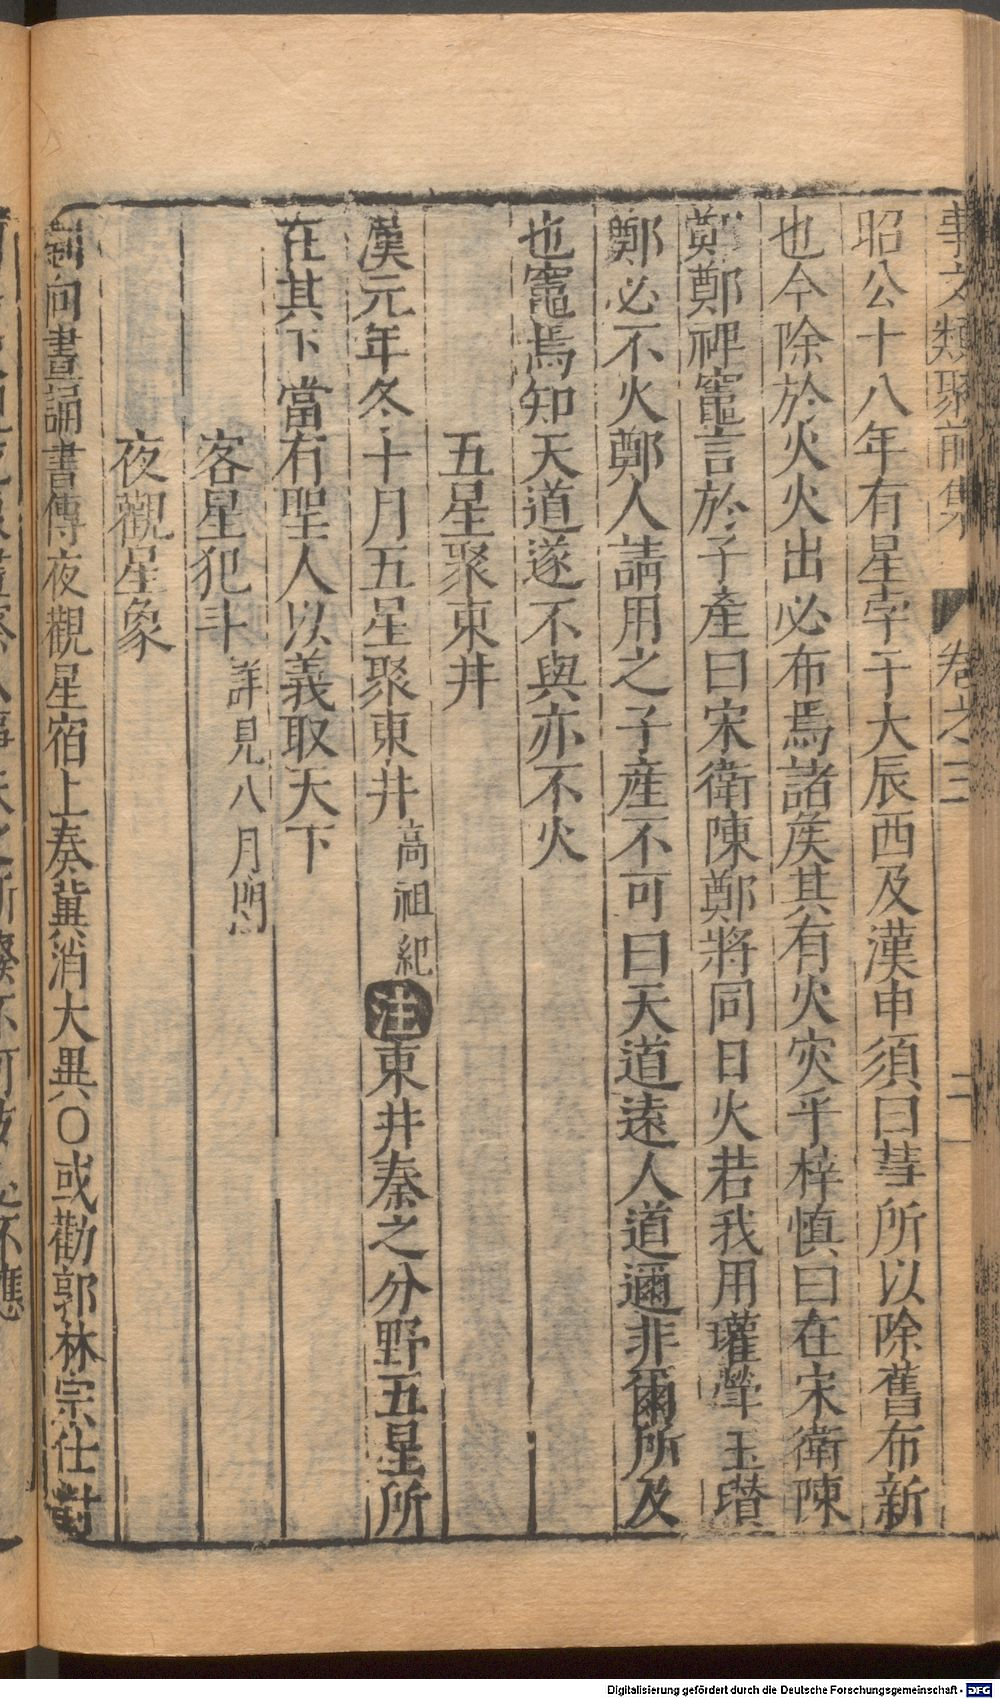 事文類聚前集 卷之三 二
昭公十八年有星孛于大辰西及漢申須曰彗所以除舊布新
也今除於火火出必布焉諸矦其有火灾乎梓慎曰在宋衛陳
鄭鄭裨竈言於子產曰宋衛陳鄭將同日火若我用瓘斝玉瓚
鄭必不火鄭人請用之子產不可曰天道遠人道邇非爾所及
也竈焉知天道遂不與亦不火
五星聚東井
漢元年冬十月五星聚東井高祖紀注東井秦之分野五星所
在其下當有聖人以義取天下
客星犯斗詳見八月門
夜觀星象
劉向晝誦書傳夜觀星宿上奏兾消大異○或勸郭林宗仕對
Digitalisierung gefördert durch die Deutsche Forschungsgemeinschaft - DFG